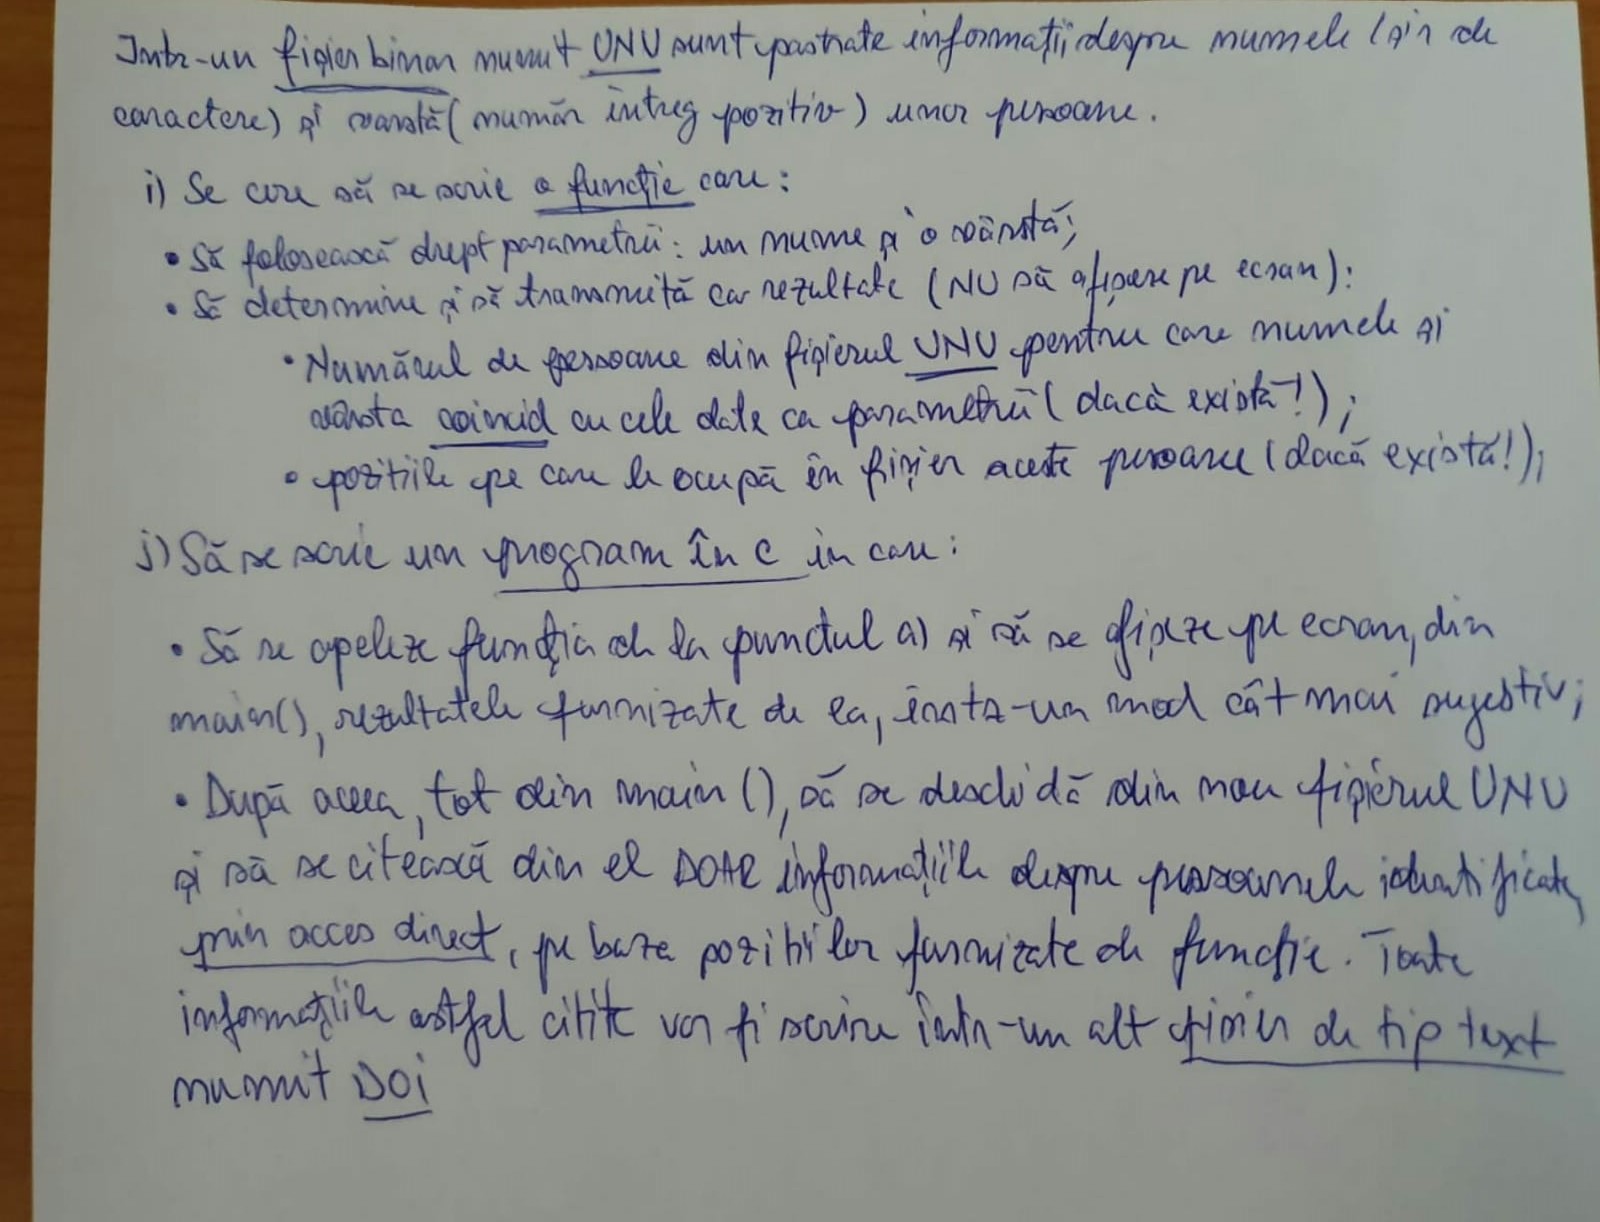 Intr-un fișier binar numit UNU sunt pastrate informații despre numele (șir de
caractere) și varstă (număr întreg pozitiv) unor persoane.
i) Se cere să se scrie o funcție care:
• Să folosească drept parametrii: un nume și o vârstă;
• Să determine și să transmită ca rezultate (NU să afișeze pe ecran):
• Numărul de persoane din fișierul UNU pentru care numele și
vârsta coincid cu cele date ca parametrii (dacă există!);
• pozitiile pe care le ocupă în fișier aceste persoane (dacă există!);
j) Să se scrie un program în C in care:
• Să se apeleze funcția de la punctul a) și să se afișeze pe ecran, din
main(), rezultatele furnizate de ea, într-un mod cât mai sugestiv;
• După aceea, tot din main(), să se deschidă din nou fișierul UNU
și să se citească din el DOAR informațiile despre persoanele identificate,
prin acces direct, pe baza pozitiilor furnizate de funcție. Toate
informațiile astfel citite vor fi scrise într-un alt fișier de tip text
numit DOI